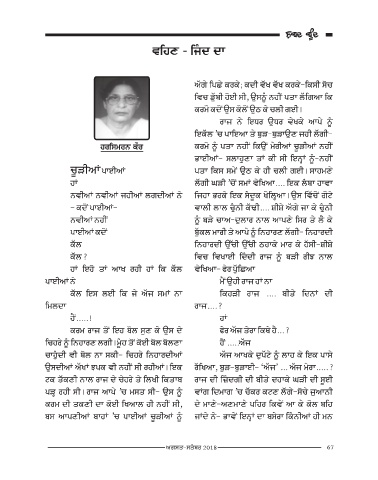 ਵਹਿਣ - ਜਿੰਦ ਦਾ
ਹਰਸਿਮਰਨ ਕੌਰ
ਚੂੜੀਆਂ ਪਾਈਆਂ
ਹਾਂ
ਨਵੀਆਂ ਨਵੀਆਂ ਜਹੀਆਂ ਲਗਦੀਆਂ ਨੇ
- ਕਦੋਂ ਪਾਈਆਂ-
ਨਵੀਆਂ ਨਹੀਂ
ਪਾਈਆਂ ਕਦੋਂ
ਕੱਲ
ਕੱਲ ?
ਹਾਂ ਇਹੋ ਤਾਂ ਆਖ ਰਹੀ ਹਾਂ ਕਿ ਕੱਲ
ਪਾਈਆਂ ਨੇ
ਕੱਲ ਇਸ ਲਈ ਕਿ ਜੇ ਅੱਜ ਸਮਾਂ ਨਾ
ਮਿਲਦਾ
ਹੈਂ.....!
ਕਰਮ ਰਾਜ ਤੋਂ ਇਹ ਬੋਲ ਸੁਣ ਕੇ ਉਸ ਦੇ
ਚਿਹਰੇ ਨੂੰ ਨਿਹਾਰਣ ਲਗੀ। ਮੂੰਹ ਤੋਂ ਕੋਈ ਬੋਲ ਬੋਲਣਾ
ਚਾਹੁੰਦੀ ਵੀ ਬੋਲ ਨਾ ਸਕੀ- ਚਿਹਰੇ ਨਿਹਾਰਦੀਆਂ
ਉਸਦੀਆਂ ਅੱਖਾਂ ਝਪਕ ਵੀ ਨਹੀਂ ਸੀ ਰਹੀਆਂ। ਇਕ
ਟਕ ਤੱਕਣੀ ਨਾਲ ਰਾਜ ਦੇ ਚੇਹਰੇ ਤੇ ਲਿਖੀ ਕਿਤਾਬ
ਪੜ੍ਹ ਰਹੀ ਸੀ। ਰਾਜ ਆਪੇ 'ਚ ਮਸਤ ਸੀ- ਉਸ ਨੂੰ
ਕਰਮ ਦੀ ਤਕਣੀ ਦਾ ਕੋਈ ਖਿਆਲ ਹੀ ਨਹੀਂ ਸੀ,
ਬਸ ਆਪਣੀਆਂ ਬਾਹਾਂ 'ਚ ਪਾਈਆਂ ਚੂੜੀਆਂ ਨੂੰ
ਅੱਗੇ ਪਿਛੇ ਕਰਕੇ; ਕਦੀ ਵੇਖ ਵੇਖ ਕਰਕੇ-ਕਿਸੀ ਸੋਚ
ਵਿਚ ਡੁੱਬੀ ਹੋਈ ਸੀ, ਉਸਨੂੰ ਨਹੀਂ ਪਤਾ ਲੱਗਿਆ ਕਿ
ਕਰਮੋ ਕਦੋਂ ਉਸ ਕੋਲੋਂ ਉਠ ਕੇ ਚਲੀ ਗਈ।
ਰਾਜ ਨੇ ਇਧਰ ਉਧਰ ਵੇਖਕੇ ਆਪੇ ਨੂੰ
ਇਕੱਲ 'ਚ ਪਾਇਆ ਤੇ ਬੁੜ-ਬੁੜਾਉਣ ਜਹੀ ਲੱਗੀ-
ਕਰਮੋ ਨੂੰ ਪਤਾ ਨਹੀਂ ਕਿਉਂ ਮੇਰੀਆਂ ਚੂੜੀਆਂ ਨਹੀਂ
ਭਾਈਆਂ- ਸਲਾਹੁਣਾ ਤਾਂ ਕੀ ਸੀ ਇਨ੍ਹਾਂ ਨੂੰ-ਨਹੀਂ
ਪਤਾ ਕਿਸ ਸਮੇਂ ਉਠ ਕੇ ਹੀ ਚਲੀ ਗਈ। ਸਾਹਮਣੇ
ਲੱਗੀ ਘੜੀ 'ਚੋਂ ਸਮਾਂ ਵੇਖਿਆ.... ਇਕ ਲੰਬਾ ਹਾਵਾ
ਜਿਹਾ ਭਰਕੇ ਇਕ ਸੰਦੂਕ ਖੋਲ੍ਹਿਆ। ਉਸ ਵਿੱਚੋਂ ਗੋਟੇ
ਵਾਲੀ ਲਾਲ ਚੁੰਨੀ ਕੱਢੀ.... ਸ਼ੀਸ਼ੇ ਅੱਗੇ ਜਾ ਕੇ ਚੁੰਨੀ
ਨੂੰ ਬੜੇ ਚਾਅ-ਦੁਲਾਰ ਨਾਲ ਆਪਣੇ ਸਿਰ ਤੇ ਲੈ ਕੇ
ਬੁੱਕਲ ਮਾਰੀ ਤੇ ਆਪੇ ਨੂੰ ਨਿਹਾਰਣ ਲੱਗੀ- ਨਿਹਾਰਦੀ
ਨਿਹਾਰਦੀ ਉੱਚੀ ਉੱਚੀ ਠਹਾਕੇ ਮਾਰ ਕੇ ਹੱਸੀ-ਸ਼ੀਸ਼ੇ
ਵਿਚ ਵਿਖਾਈ ਦਿੰਦੀ ਰਾਜ ਨੂੰ ਬੜੀ ਗੌਰ ਨਾਲ
ਵੇਖਿਆ- ਫੇਰ ਪੁੱਛਿਆ
ਮੈਂ ਉਹੀ ਰਾਜ ਹਾਂ ਨਾ
ਕਿਹੜੀ ਰਾਜ .... ਬੀਤੇ ਦਿਨਾਂ ਦੀ
ਰਾਜ....?
ਹਾਂ
ਫੇਰ ਅੱਜ ਤੇਰਾ ਕਿਥੇ ਹੈ...?
ਹੈਂ .... ਅੱਜ
ਅੱਜ ਆਖਕੇ ਦੁਪੱਟੇ ਨੂੰ ਲਾਹ ਕੇ ਇਕ ਪਾਸੇ
ਰੱਖਿਆ, ਬੁੜ-ਬੁੜਾਈ- 'ਅੱਜ' ... ਅੱਜ ਮੇਰਾ.....?
ਰਾਜ ਦੀ ਜ਼ਿੰਦਗੀ ਦੀ ਬੀਤੇ ਦਹਾਕੇ ਘੜੀ ਦੀ ਸੂਈ
ਵਾਂਗ ਦਿਮਾਗ 'ਚ ਚੱਕਰ ਕਟਣ ਲੱਗੇ-ਸੱਚੇ ਜੁਆਨੀ
ਦੇ ਮਾਣੇ-ਅਣਮਾਣੇ ਪਹਿਰ ਕਿਵੇਂ ਆ ਕੇ ਕੋਲ ਬਹਿ
ਜਾਂਦੇ ਨੇ- ਭਾਵੇਂ ਇਨ੍ਹਾਂ ਦਾ ਬਸੇਰਾ ਕਿੰਨੀਆਂ ਹੀ ਮਨ
ਅਗਸਤ-ਸਤੰਬਰ 2018
67